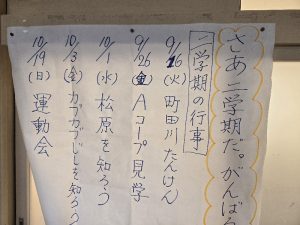 さあ二学期だ。がんばろ
二学期の行事
9/16(火)町田川たんけん
9/26(金)Aコープ見学
10/1(水)松原を知ろう
10/3(金)カブガブじしを知ろう
10/19(日)運動会